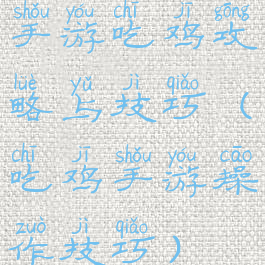 shǒu yóu chī jī gōng
手游吃鸡攻
lüè yǔ jì qiǎo
略与技巧（
chī jī shǒu yóu cāo
吃鸡手游操
zuò jì qiǎo
作技巧）